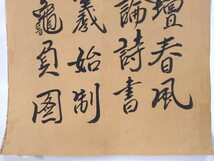 壇春風
論詩書
羲始制
龜負图